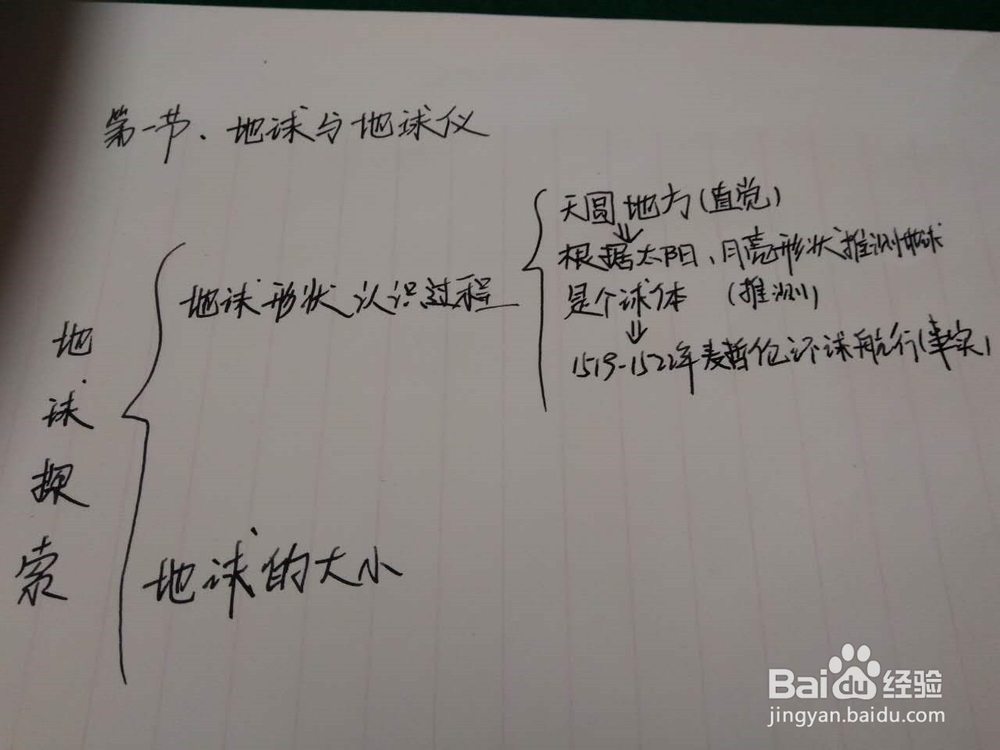 第一节、地球与地球仪
天圆地方(直觉)
地球形状认识过程
根据太阳、月亮形状推测地球
是个球体 (推测)
1519-1522年麦哲伦环球航行(事实)
地球探索
地球的大小
Baidu经验
jingyan.baidu.com